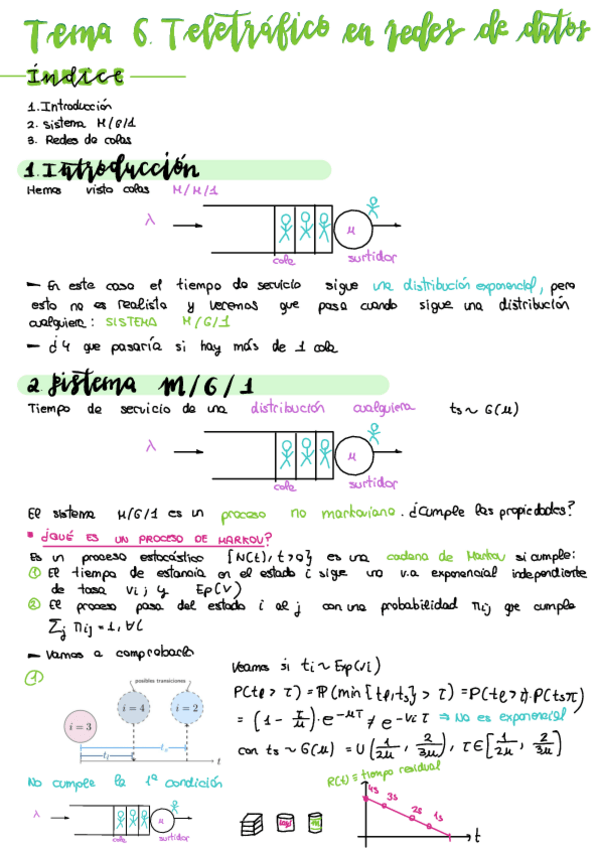 Tema 6. Teletráfico en redes de datos
Índice
1. Introducción
2. Sistema M/G/1
3. Redes de colas
1. Introducción
Hemos visto colas M/M/1
λ
μ
cola
surtidor
– En este caso el tiempo de servicio sigue una distribución exponencial, pero
esto no es realista y veremos que pasa cuando sigue una distribución
cualquiera: SISTEMA M/G/1
– ¿Y que pasaría si hay más de 1 cola
2. Sistema M/G/1
Tiempo de servicio de una distribución cualquiera ts ~ G(μ)
λ
μ
cola
surtidor
El sistema M/G/1 es un proceso no markoviano. ¿Cumple las propiedades?
• ¿QUÉ ES UN PROCESO DE MARKOV?
Es un proceso estocástico {N(t), t>0} es una cadena de Markov si cumple:
① El tiempo de estancia en el estado i sigue una v.a exponencial independiente
de tasa Vi, y Exp(V)
② El proceso pasa del estado i al j con una probabilidad Πij que cumple
Σj Πij = 1, ∀i
– Vamos a comprobarlo
①
posibles transiciones
i = 3
i = 4
i = 2
t
Veamos si ti ~ Exp(vi)
P(te > τ) = P(min{te, ts} > τ) = P(te > τ)·P(ts>τ)
≠ e^-Viτ ⇒ No es exponencial
con ts ~ G(μ) = U(1/2μ, 2/3μ), τ∈[1/2μ, 2/3μ]
No cumple la 1ª condición
R(t) ≡ tiempo residual
4s
3s
2s
1s
t
λ
μ
cola
surtidor